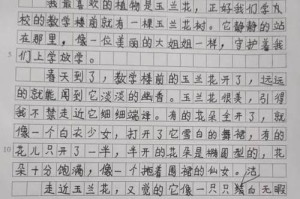 我最喜欢的植物是玉兰花，正好我们学
校的教学楼前就有一棵玉兰花树。它静静的站
在那里，像一位美丽的大姐姐一样，守护着我
5
们上学放学。
春天到了，教学楼前的玉兰花开了，远远
的就能闻到它淡淡的幽香。玉兰花很美，引得
我不禁走近它细细端详。有的花朵全开了，就
像一个白衣少女，打开了它雪白的舞裙，有的
10
花儿只开了一半，半开的花朵是椭圆型的，花
朵十分饱满，像一个抱着围裙的仙女。
走近玉兰花，又觉的它像一只只 白无暇